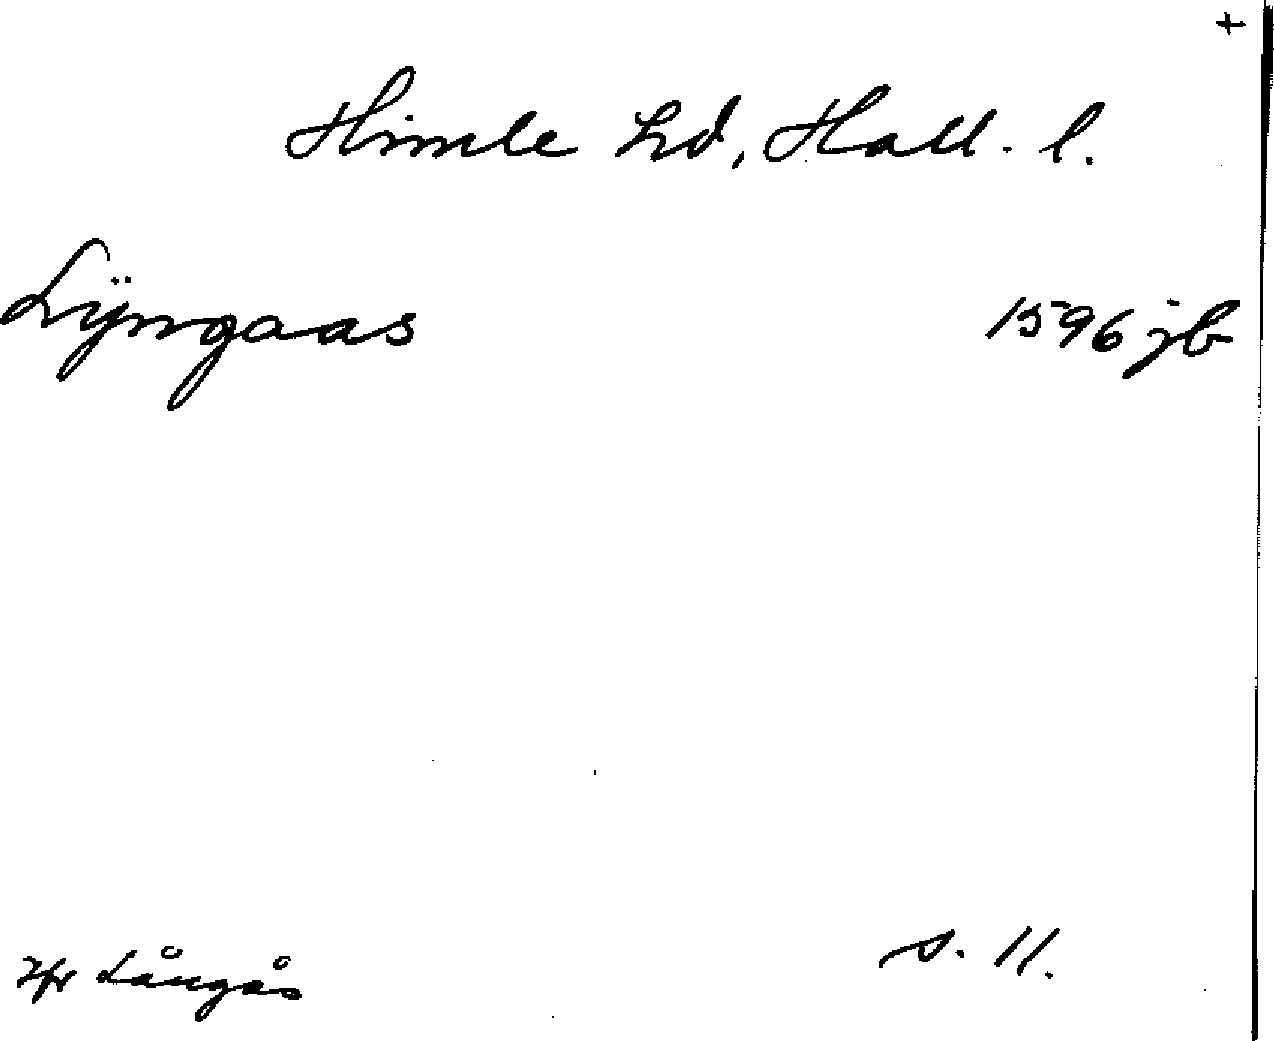 +
Himle hd, Hall. l.
Lÿngaas 1596 jb
Jfr Långås s. 11.